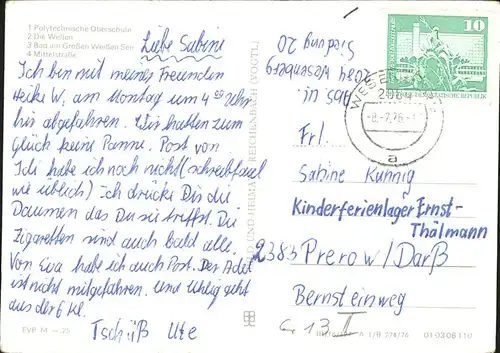 1 Polytechnische Oberschule
2 Die Weißen
3 Bad am Großen Weißen See
4 Mittelstraße
Liebe Sabine
Ich bin mit meiner Freundin
Heike W. am Montag um 4 00 Uhr
hier abgefahren. Wir hatten zum
Glück keine Panne. Post von
Idi habe ich noch nicht (schreibfaul
wie üblich) Ich drücke Dir die
Daumen das Du sie triffst. Die
Zigaretten sind auch bald alle.
Von Eva habe ich auch Post. Der Adel
ist nicht mitgefahren. Und Uhlig geht
aus der 6 Kl.
Tschüß Ute
EVP M -,25
REICHENBACH (VOGTL)
Abs. U.
2084 Wesenberg
Siedlung 20
10
DEUTSCHE DEMOKRATISCHE REPUBLIK
2084
-8.-7.76-1
a
Frl.
Sabine Kuhnig
Kinderferienlager Ernst-
Thälmann
2383 Prerow/Darß
Bernsteinweg
13 II
A 1/B 274/76
01-03 06 110